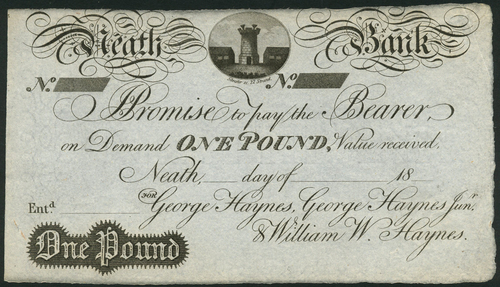 Neath Bank
No. No.
I Promise to pay the Bearer,
on Demand ONE POUND, Value received.
Neath, day of 18
Entd FOR George Haynes, George Haynes Junr
& William W. Haynes.
One Pound